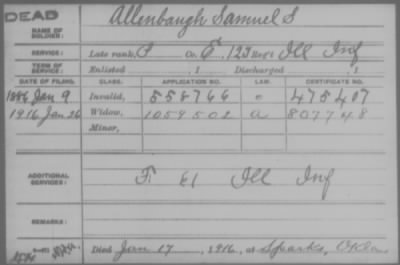 DEAD
Allenbaugh Samuel S
NAME OF SOLDIER:
SERVICE: Late rank, P Co. E, 123 Reg't Ill Inf
TERM OF SERVICE: Enlisted , 1 Discharged , 1
DATE OF FILING. CLASS. APPLICATION NO. LAW. CERTIFICATE NO.
1886 Jan 9 Invalid, 558766 475407
1916 Jan 26 Widow, 1059502 a 807748
Minor,
ADDITIONAL SERVICES: F 61 Ill Inf
REMARKS:
Died Jan 17, 1916, at Sparks, Okla